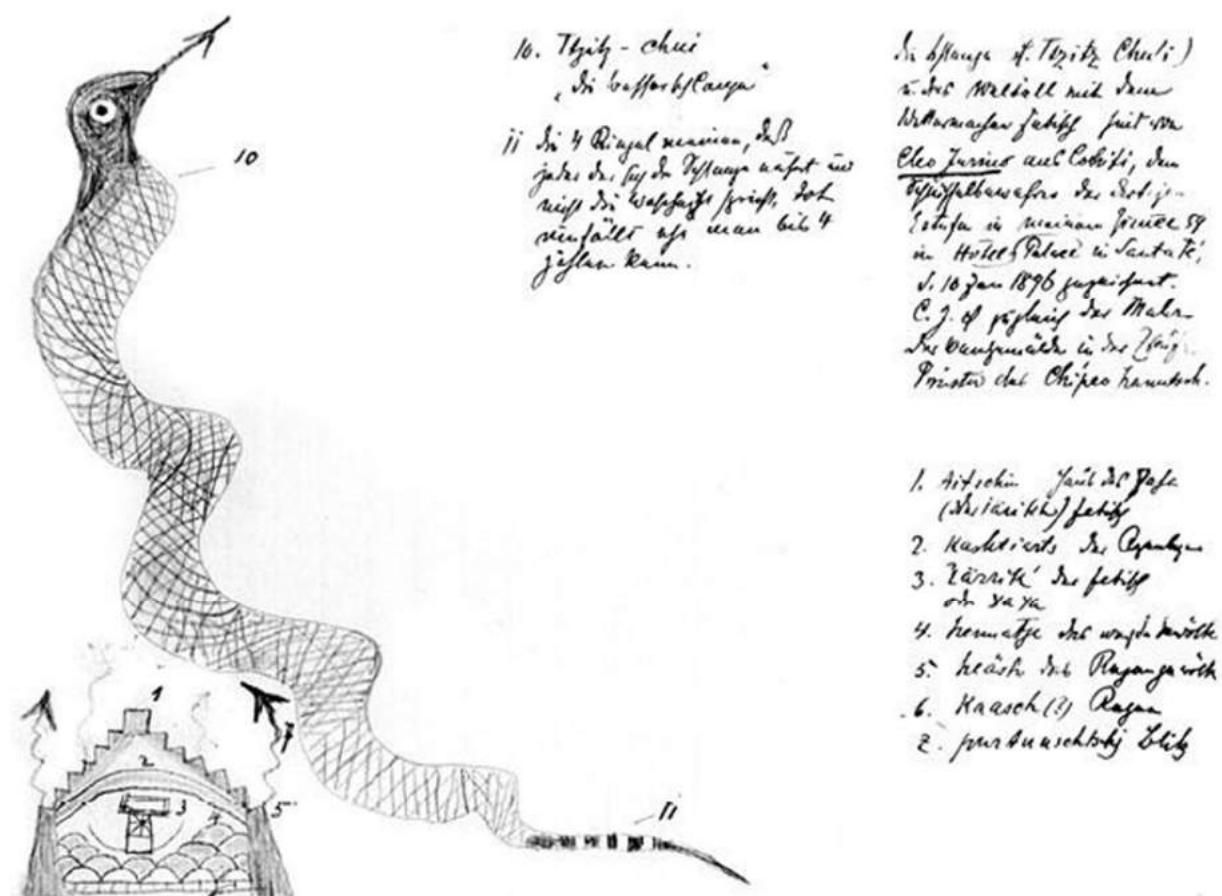 10. Tzitz - chui
„die Wasserschlange"
11 die 4 Ringel meinen, daß
jeder der sich der Schlange nähert und
nicht die Wahrheit spricht, tot
hinfällt ehe man bis 4
zählen kann.
die Schlange Tzitz Chu'i)
u. das Weltall mit dem
Wettermacher Fetisch sind von
Cleo Jurino aus Cochiti, dem
der dortigen
Estufa in meinem Zimmer 59
in Hotel Palace in Santa Fé,
d. 10 Jan 1896 gezeichnet.
C. J. ist zugleich der Maler
der Wandgemälde in der
Priester des Chipeo Nanutsch.
1. Aitschin Haus des Yaya
Fetisch
2. Kashtiarts der Regenbogen
3. Yerrik der Fetisch
oder Yaya
4. Nematje
5. Neäsh das Regengewölk
6. Kaasch (?) Regen
7. Blitz
10
1
7
2
3
4
5
11